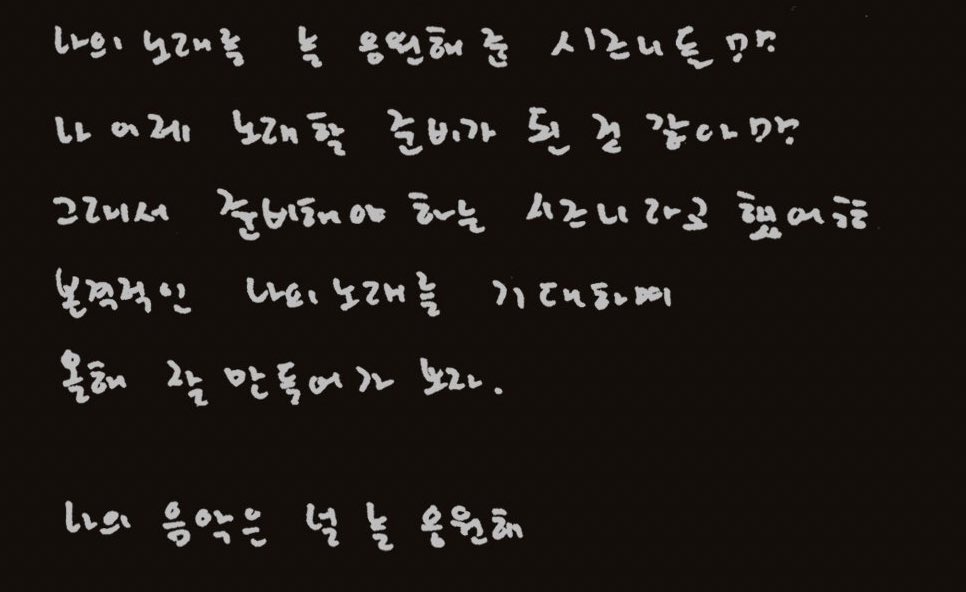 나의 노래를 늘 응원해 준 시즈니들 맞.
나 이제 노래할 준비가 된 것 같아 맞.
그래서 준비해야 하는 시즈니라고 했어
본격적인 나의 노래를 기대하며
올해 잘 만들어 가 보자.
나의 음악은 널 늘 응원해